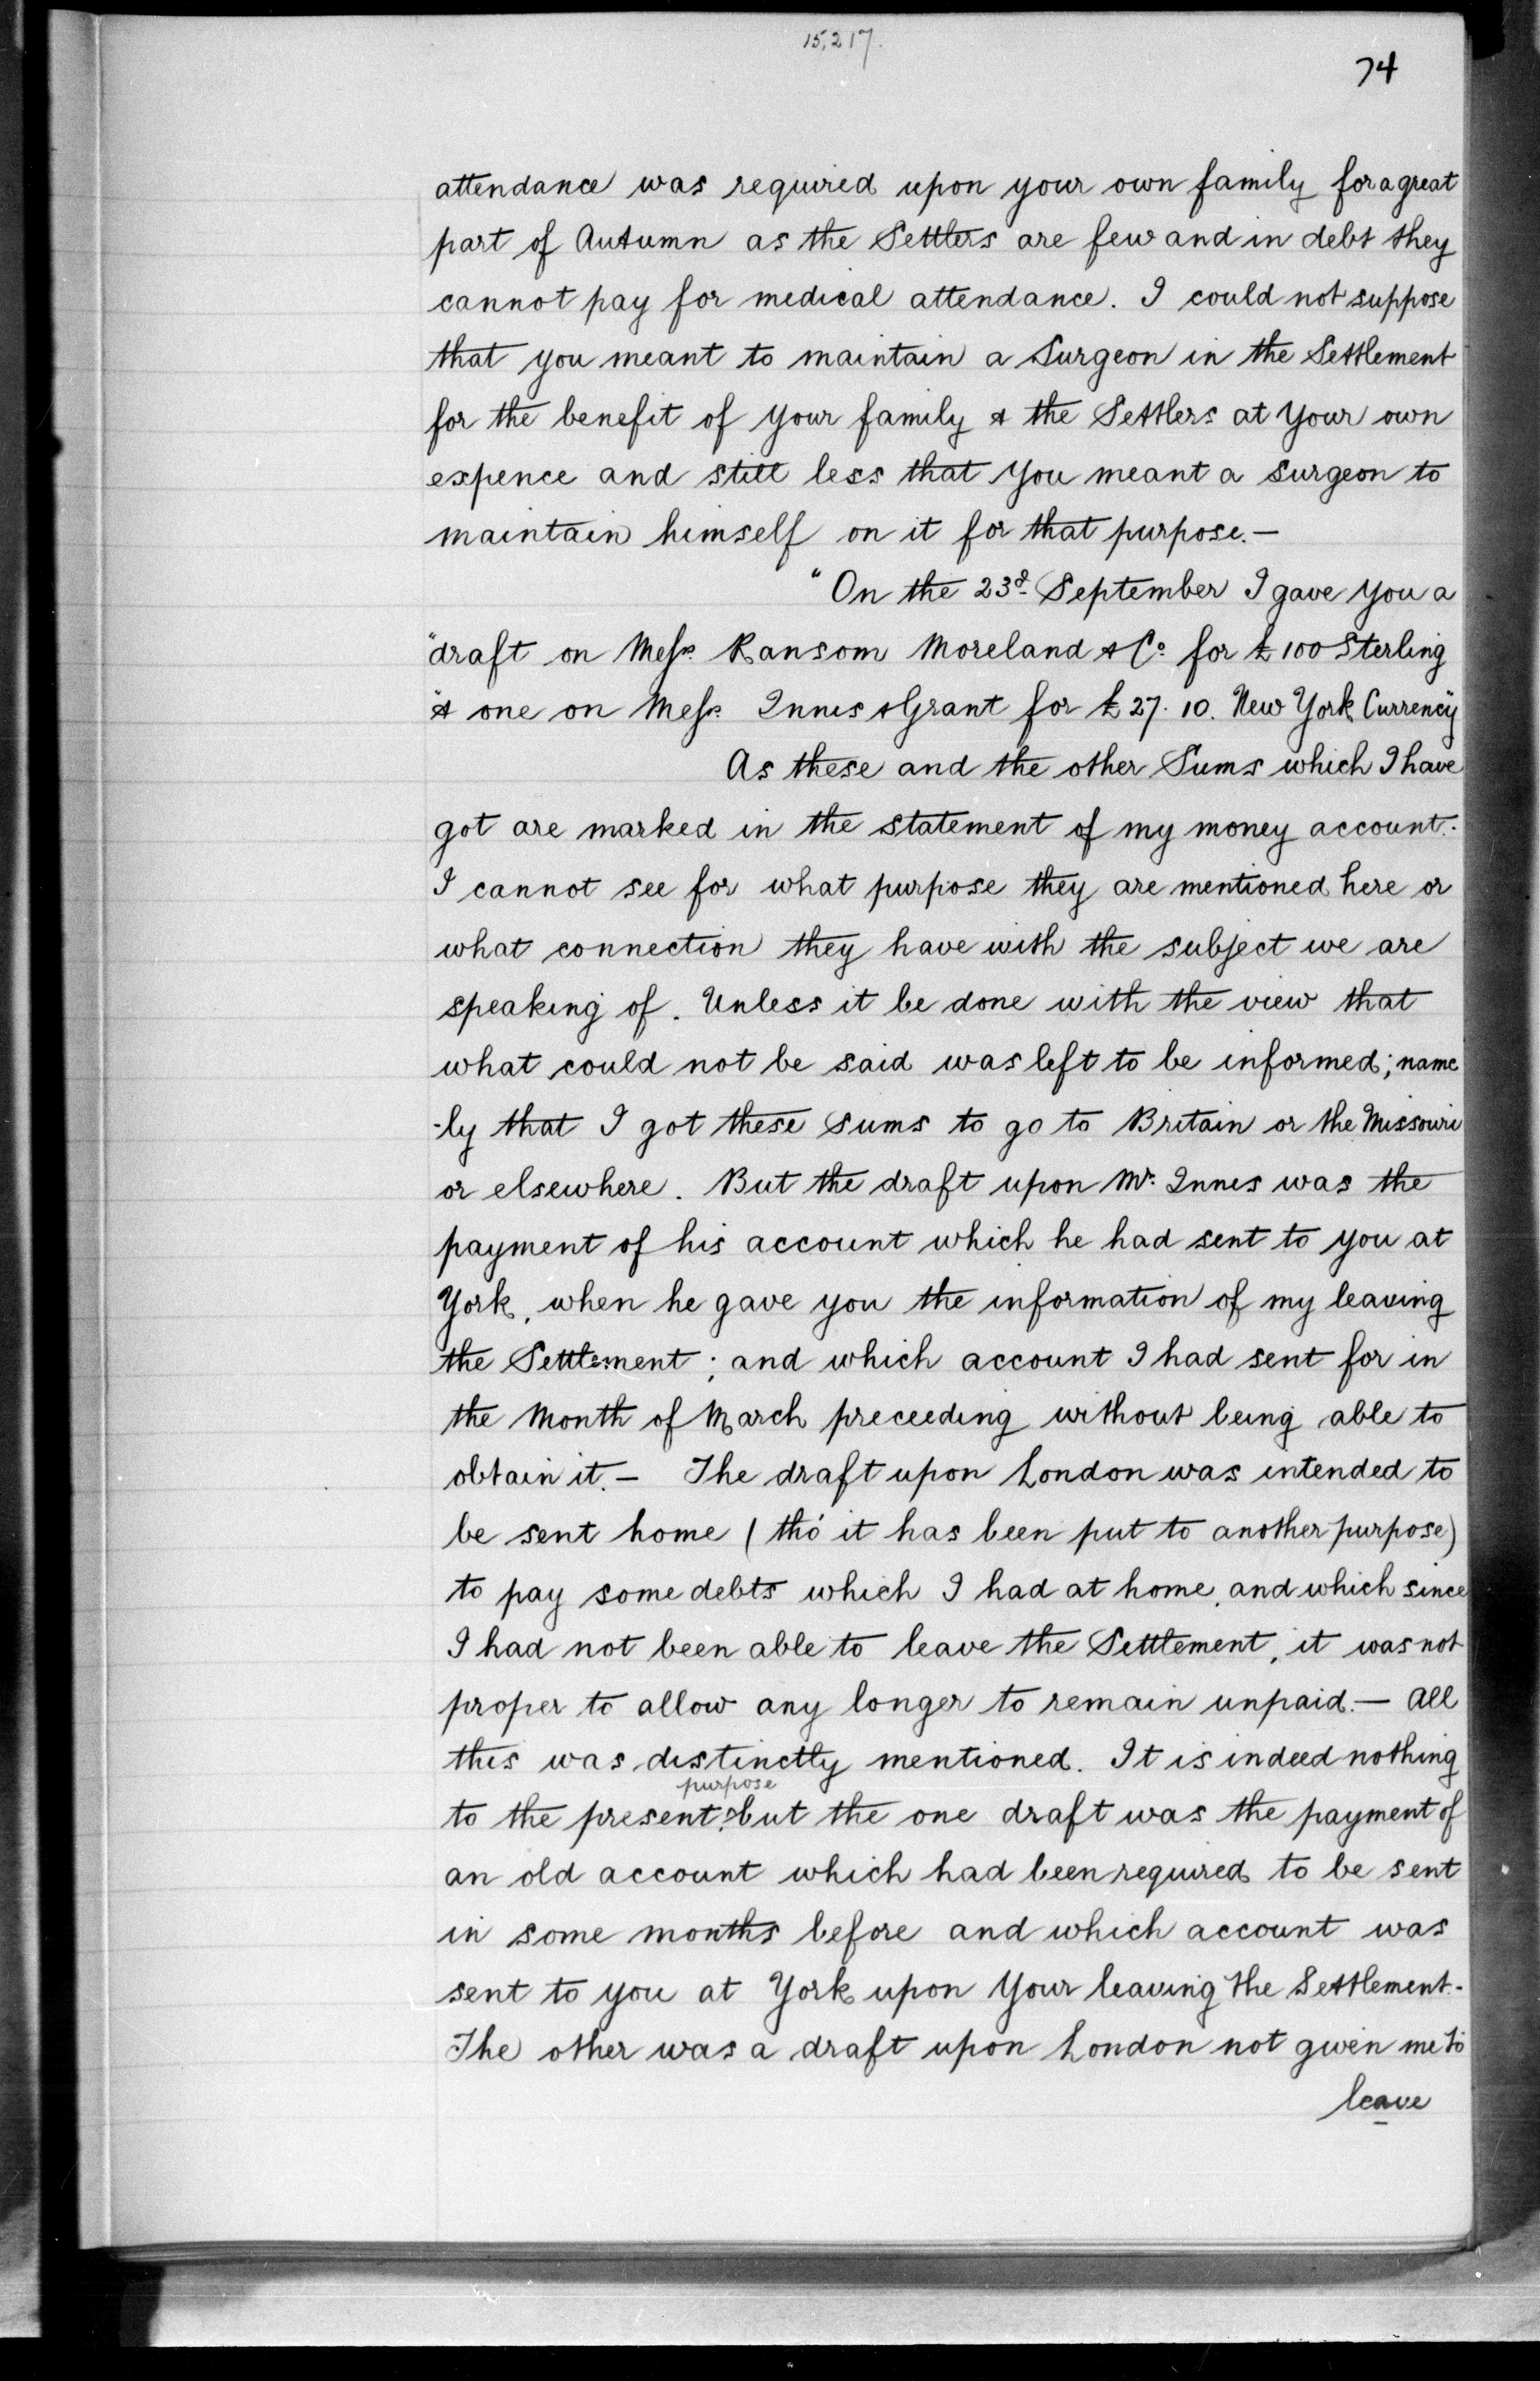 15,217.
74
attendance was required upon your own family for a great
part of Autumn as the Settlers are few and in debt they
cannot pay for medical attendance. I could not suppose
that you meant to maintain a Surgeon in the Settlement
for the benefit of your family & the Settlers at your own
expence and still less that you meant a surgeon to
maintain himself on it for that purpose.—
"On the 23d September I gave you a
"draft on Messrs. Ransom Moreland & Co. for £100 Sterling
"& one on Messrs. Innes & Grant for £27. 10. New York Currency"
As these and the other Sums which I have
got are marked in the statement of my money account.
I cannot see for what purpose they are mentioned here or
what connection they have with the subject we are
speaking of. Unless it be done with the view that
what could not be said was left to be informed; name
-ly that I got these sums to go to Britain or the Missouri
or elsewhere. But the draft upon Mr. Innes was the
payment of his account which he had sent to you at
York, when he gave you the information of my leaving
the Settlement; and which account I had sent for in
the Month of March preceeding without being able to
obtain it.— The draft upon London was intended to
be sent home (tho' it has been put to another purpose)
to pay some debts which I had at home, and which since
I had not been able to leave the Settlement, it was not
proper to allow any longer to remain unpaid.— All
this was distinctly mentioned. It is indeed nothing
purpose
to the present; but the one draft was the payment of
an old account which had been required to be sent
in some months before and which account was
sent to you at York upon your leaving the Settlement.-
The other was a draft upon London not given me to
leave